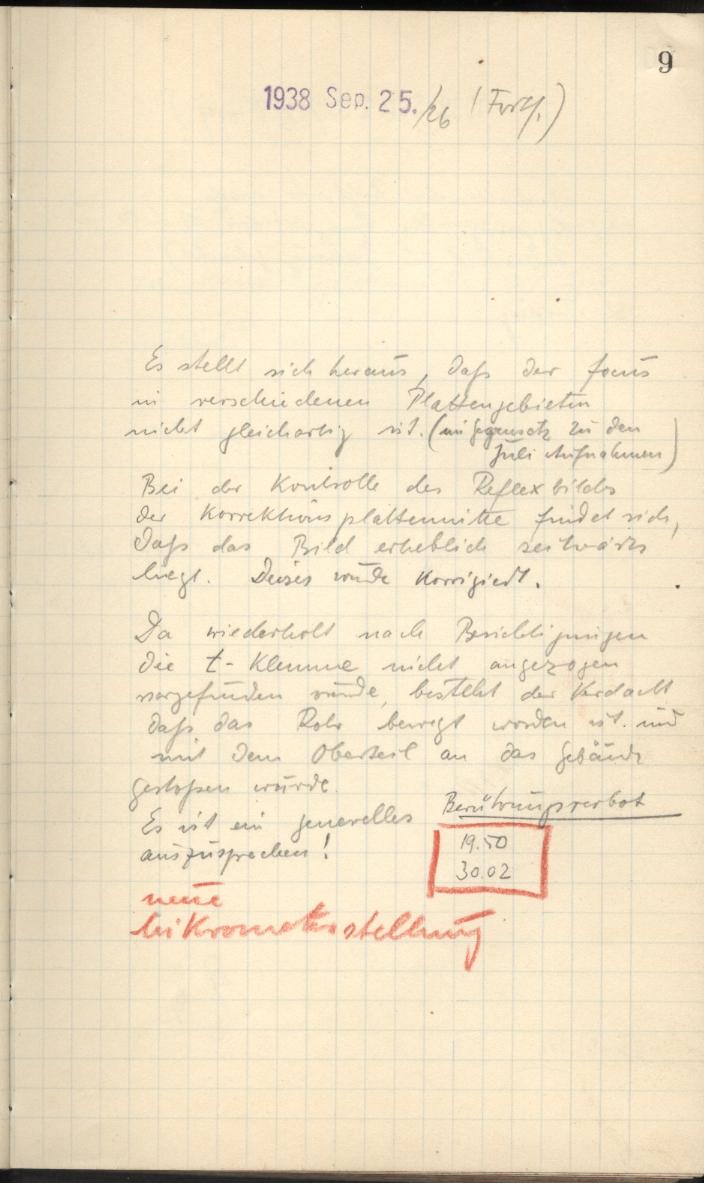 9
1938 Sep. 25./26 (Forts.)
Es stellt sich heraus, daß der focus
in verschiedenen Plattengebieten
nicht gleichartig ist. (im Gegensatz zu den
Juli Aufnahmen)
Bei der Kontrolle des Reflexbildes
der Korrektionsplattenmitte findet sich,
daß das Bild erheblich seitwärts
liegt. Dieses wurde korrigiert.
Da wiederholt nach Besichtigungen
die t-Klemme nicht angezogen
vorgefunden wurde, besteht der Verdacht
daß das Rohr bewegt worden ist und
mit dem Oberteil an das Gebäude
gestoßen wurde.
Es ist ein generelles Berührungsverbot
auszusprechen!
19.50
30.02
neue
Mikrometerstellung